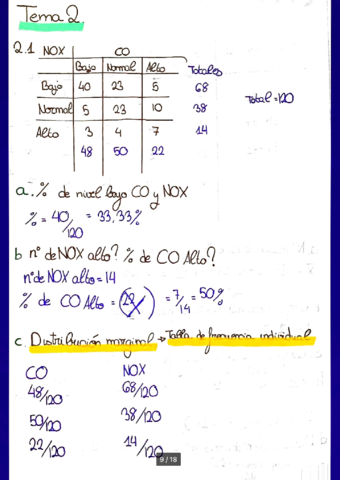 Tema 2.
2.1 NOX CO
Bajo Normal Alto Totales
Bajo 40 23 5 68
Total=120
Normal 5 23 10 38
Alto 3 4 7 14
48 50 22
a. % de nivel bajo CO y NOX
% = 40/120 = 33,33%
b nº de NOX alto? % de CO Alto?
nº de NOX alto = 14
% de CO Alto = (22) = 7/14 = 50%
c. Distribución marginal → Tabla de frecuencia individual
CO NOX
48/120 68/120
50/120 38/120
22/120 14/120
9 / 18